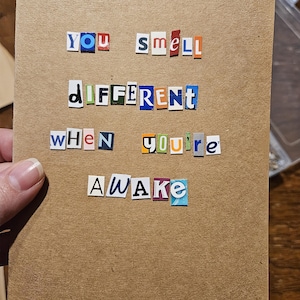 YOU smell
dIFFERENt
wHEN yOU're
AWAKe